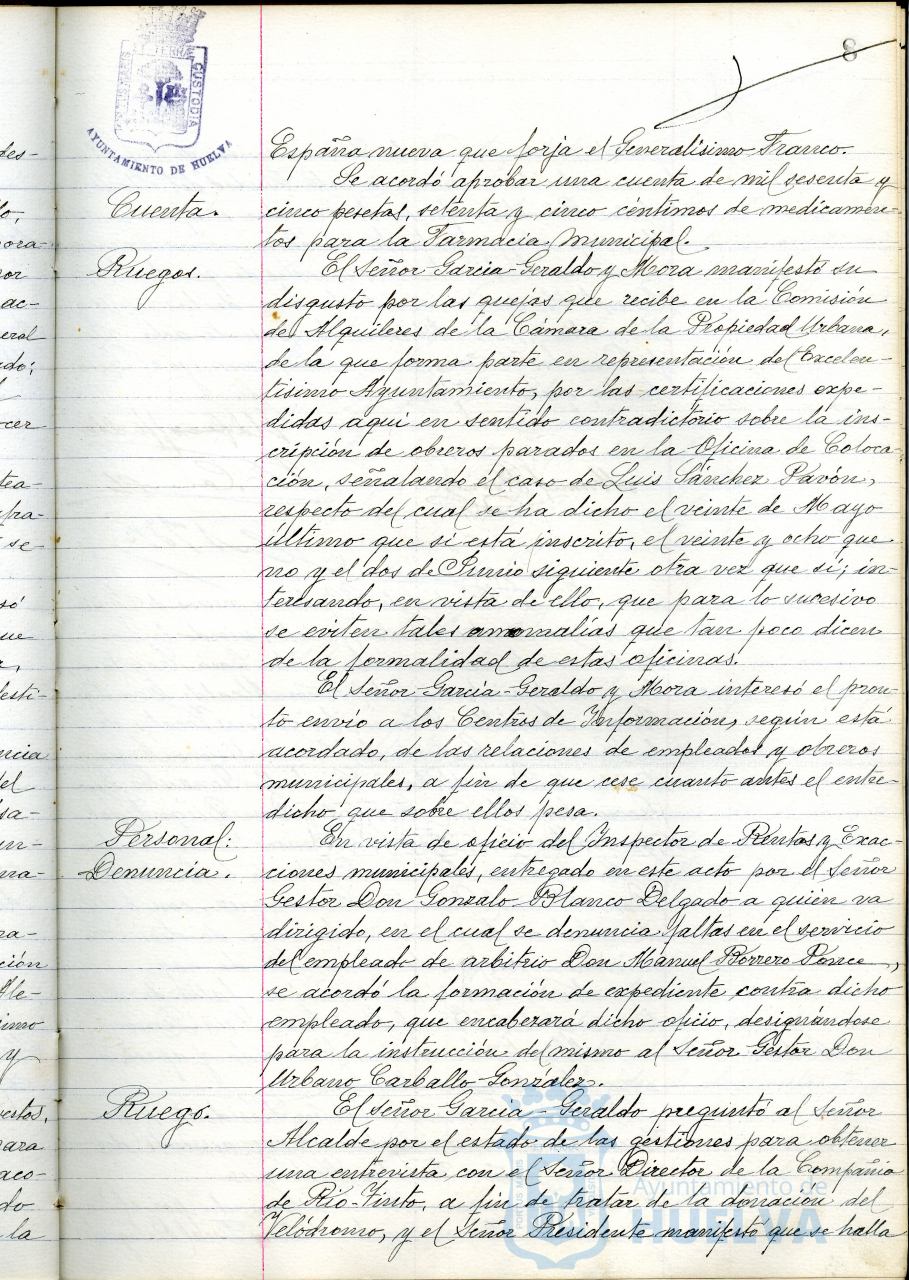 8
PORTUS MARIS
ET TERRAE
CUSTODIA
AYUNTAMIENTO DE HUELVA
España nueva que forja el Generalisimo Franco.
Cuenta.
Se acordó aprobar una cuenta de mil sesenta y
cinco pesetas, setenta y cinco céntimos de medicamen-
tos para la Farmacia Municipal.
Ruegos.
El Señor Garcia-Geraldo y Mora manifestó su
disgusto por las quejas que recibe en la Comisión
de Alquileres de la Cámara de la Propiedad Urbana,
de la que forma parte en representación del Excelen-
tisimo Ayuntamiento, por las certificaciones expe-
didas aqui en sentido contradictorio sobre la ins-
cripción de obreros parados en la Oficina de Coloca-
ción, señalando el caso de Luis Sánchez Pavón,
respecto del cual se ha dicho el veinte de Mayo
último que si está inscrito, el veinte y ocho que
no y el dos de Junio siguiente otra vez que sí; in-
teresando, en vista de ello, que para lo sucesivo
se eviten tales anomalías que tan poco dicen
de la formalidad de estas oficinas.
El Señor García-Geraldo y Mora interesó el pron-
to envío a los Centros de Información, según está
acordado, de las relaciones de empleados y obreros
municipales, a fin de que cese cuanto antes el entre-
dicho que sobre ellos pesa.
Personal:
Denuncia.
En vista de oficio del Inspector de Rentas y Exac-
ciones municipales, entregado en este acto por el Señor
Gestor Don Gonzalo Blanco Delgado a quién va
dirigido, en el cual se denuncia faltas en el servicio
del empleado de arbitrio Don Manuel Borrero Ponce,
se acordó la formación de expediente contra dicho
empleado, que encabezará dicho oficio, designándose
para la instrucción del mismo al Señor Gestor Don
Urbano Carballo González.
Ruego.
El señor Garcia-Geraldo preguntó al Señor
Alcalde por el estado de las gestiones para obtener
una entrevista con el Señor Director de la Compañia
de Río-Tinto, a fin de tratar de la donación del
Velódromo, y el Señor Presidente manifestó que se halla
Ayuntamiento de
HUELVA